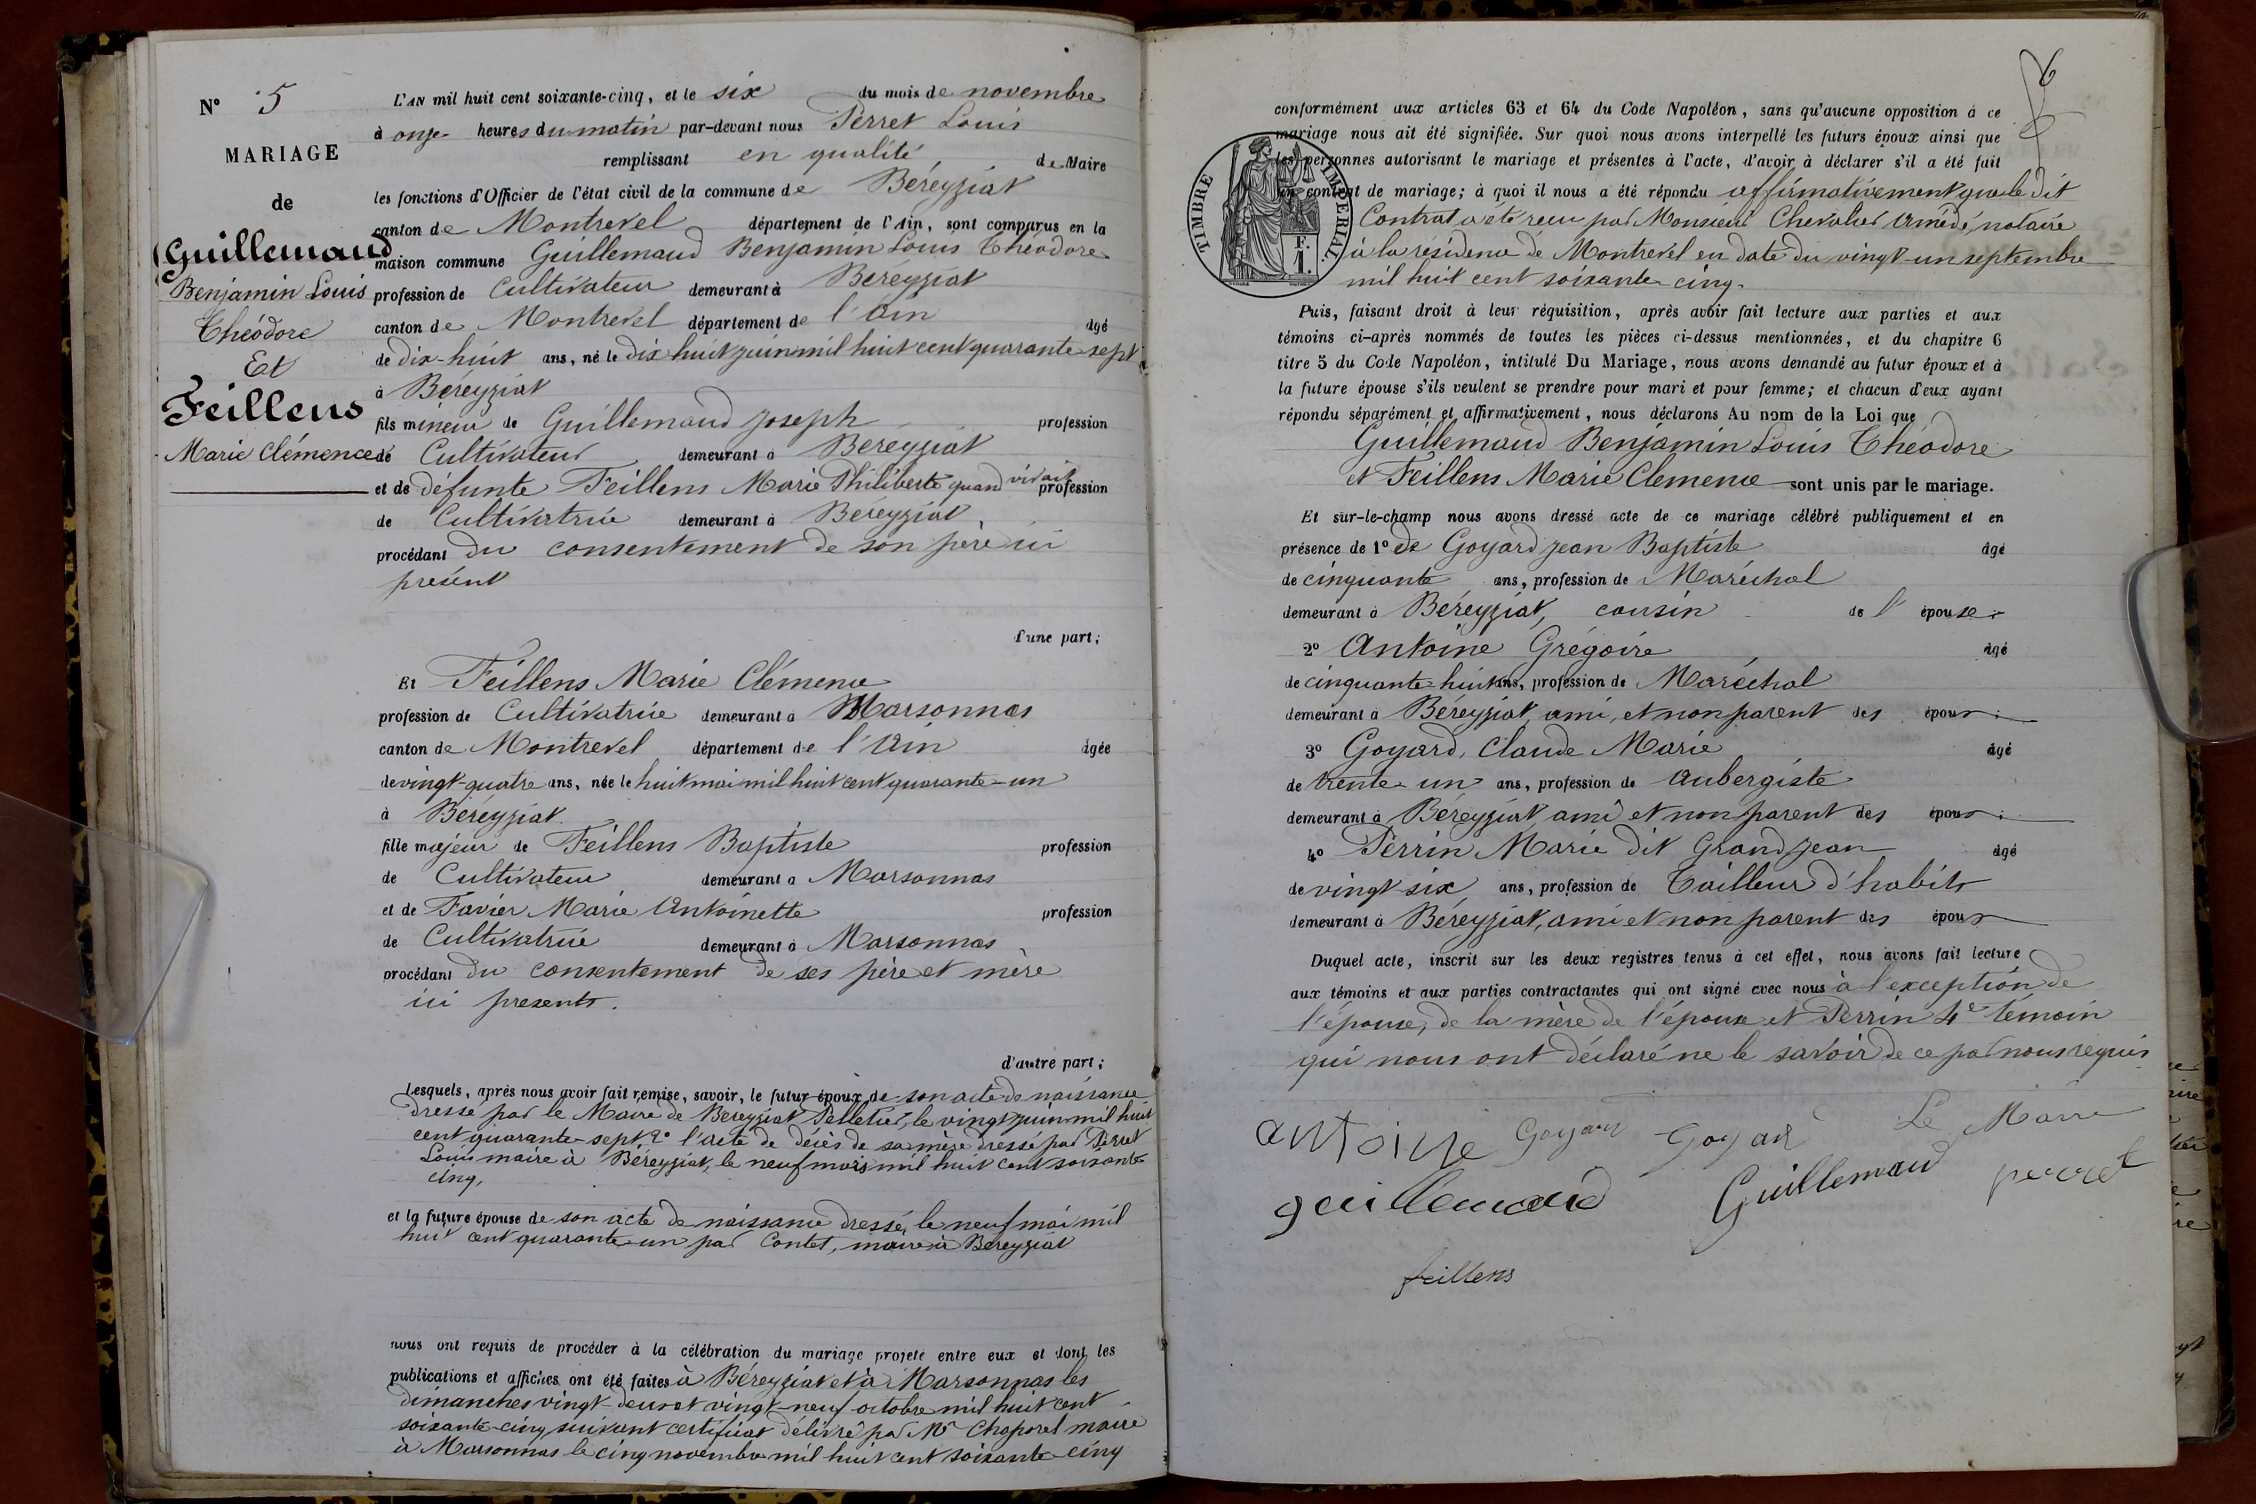 N° 5
MARIAGE
de
Guillemaud
Benjamin Louis
Théodore
Et
Feillens
Marie Clémence
L'AN mil huit cent soixante-cinq, et le six du mois de novembre
à onze heures du matin par-devant nous Perret Louis
remplissant en qualité de Maire
les fonctions d'Officier de l'état civil de la commune de Béreyziat
canton de Montrevel département de l'Ain, sont comparus en la
maison commune Guillemaud Benjamin Louis Théodore
profession de Cultivateur demeurant à Béreyziat
canton de Montrevel département de l'Ain âgé
de dix-huit ans, né le dix huit juin mil huit cent quarante sept
à Béreyziat
fils mineur de Guillemaud Joseph profession
de Cultivateur demeurant à Béreyziat
et de défunte Feillens Marie Philiberte quand vivait profession
de Cultivatrice demeurant à Béreyziat
procédant du consentement de son père ici
présent
d'une part;
Et Feillens Marie Clémence
profession de Cultivatrice demeurant à Marsonnas
canton de Montrevel département de l'Ain âgée
de vingt-quatre ans, née le huit mai mil huit cent quarante-un
à Béreyziat
fille majeur de Feillens Baptiste profession
de Cultivateur demeurant à Marsonnas
et de Favier Marie Antoinette profession
de Cultivatrice demeurant à Marsonnas
procédant du consentement de ses père et mère
ici présents.
d'autre part;
Lesquels, après nous avoir fait remise, savoir, le futur époux de son acte de naissance
dressé par le Maire de Béreyziat Pelletier, le vingt juin mil huit
cent quarante-sept 2° l'acte de décès de sa mère dressé par Perret
Louis maire à Béreyziat, le neuf mars mil huit cent soixante
cinq,
et la future épouse de son acte de naissance dressé, le neuf mai mil
huit cent quarante-un par Contet, maire à Béreyziat
nous ont requis de procéder à la célébration du mariage projeté entre eux et dont les
publications et affiches ont été faites à Béreyziat et à Marsonnas les
dimanches vingt-deux et vingt-neuf octobre mil huit cent
soixante-cinq suivant certificat délivré par Mr Chaporel maire
à Marsonnas le cinq novembre mil huit cent soixante-cinq
6
conformément aux articles 63 et 64 du Code Napoléon, sans qu'aucune opposition à ce
mariage nous ait été signifiée. Sur quoi nous avons interpellé les futurs époux ainsi que
les personnes autorisant le mariage et présentes à l'acte, d'avoir à déclarer s'il a été fait
un contrat de mariage; à quoi il nous a été répondu affirmativement que le dit
TIMBRE IMPERIAL
F.
1.
Contrat a été reçu par Monsieur Chevalier Amédé, notaire
à la résidence de Montrevel en date du vingt-un septembre
mil huit cent soixante-cinq.
Puis, faisant droit à leur réquisition, après avoir fait lecture aux parties et aux
témoins ci-après nommés de toutes les pièces ci-dessus mentionnées, et du chapitre 6
titre 5 du Code Napoléon, intitulé Du Mariage, nous avons demandé au futur époux et à
la future épouse s'ils veulent se prendre pour mari et pour femme; et chacun d'eux ayant
répondu séparément et affirmativement, nous déclarons Au nom de la Loi que
Guillemaud Benjamin Louis Théodore
et Feillens Marie Clemence sont unis par le mariage.
Et sur-le-champ nous avons dressé acte de ce mariage célébré publiquement et en
présence de 1° de Goyard Jean Baptiste âgé
de cinquante ans, profession de Maréchal
demeurant à Béreyziat, cousin de l'épouse.
2° Antoine Grégoire âgé
de cinquante-huit ans, profession de Maréchal
demeurant à Béreyziat, ami, et non parent des époux.
3° Goyard, Claude Marie âgé
de trente-un ans, profession de Aubergiste
demeurant à Béreyziat ami et non parent des époux.
4° Perrin Marie dit Grandjean âgé
de vingt six ans, profession de Tailleur d'habits
demeurant à Béreyziat, ami et non parent des époux
Duquel acte, inscrit sur les deux registres tenus à cet effet, nous avons fait lecture
aux témoins et aux parties contractantes qui ont signé avec nous à l'exception de
l'épouse, de la mère de l'épouse et Perrin 4e témoin
qui nous ont déclaré ne le savoir de ce par nous requis
antoine Goyard Goyard Le Maire
guillemaud Guillemaud perret
feillens